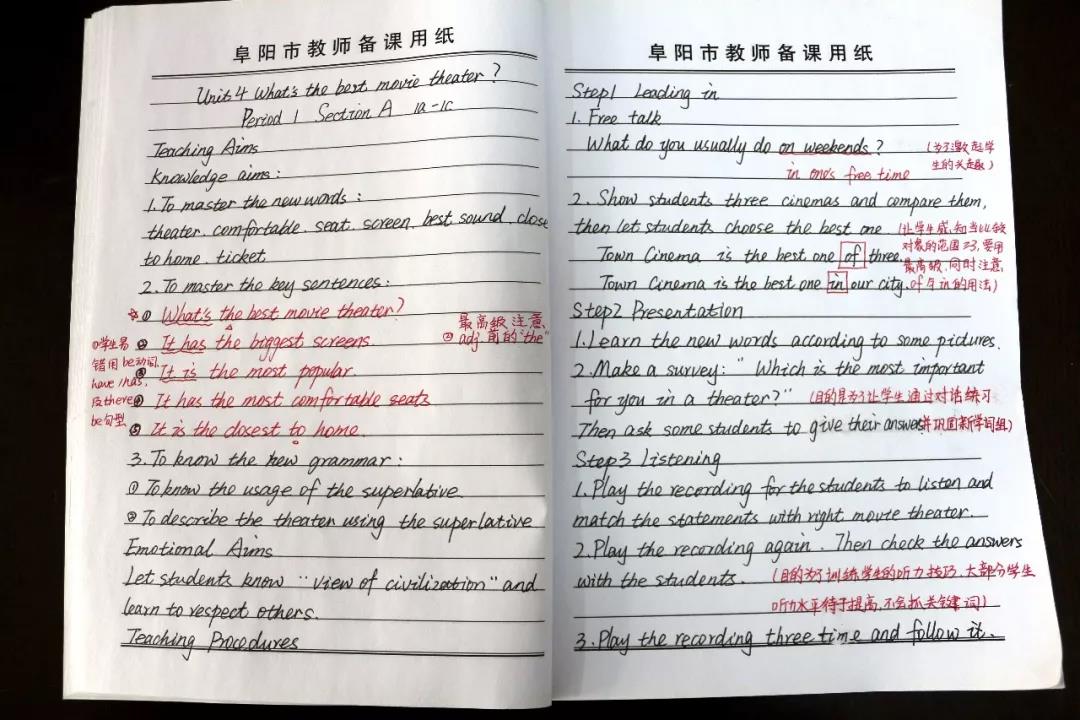 阜阳市教师备课用纸
Unit 4 What's the best movie theater?
Period 1 Section A 1a-1c
Teaching Aims
Knowledge aims:
1. To master the new words:
theater. comfortable. seat. screen. best sound. close
to home. ticket.
2. To master the key sentences:
☆① What's the best movie theater?
② It has the biggest screens.
③ It is the most popular.
④ It has the most comfortable seats
⑤ It is the closest to home.
①学生易
错用be动词,
have/has,
及there
be句型
最高级注意
② adj 前的"the"
3. To know the new grammar:
① To know the usage of the superlative.
② To describe the theater using the superlative
Emotional Aims
Let students know "view of civilization" and
learn to respect others.
Teaching Procedures
阜阳市教师备课用纸
Step1 Leading in
1. Free talk
What do you usually do on weekends? (为了激起学
生的兴趣)
in one's free time
2. Show students three cinemas and compare them,
then let students choose the best one. (让学生感知当比较
对象的范围≥3,要用
Town Cinema is the best one of three.
最高级,同时注意
Town Cinema is the best one in our city. of 与 in 的用法)
Step2 Presentation
1. Learn the new words according to some pictures.
2. Make a survey: "Which is the most important
for you in a theater?" (目的是为了让学生通过对话练习
Then ask some students to give their answers 并巩固新学词组)
Step3 Listening
1. Play the recording for the students to listen and
match the statements with right movie theater.
2. Play the recording again. Then check the answers
with the students. (目的为了训练学生的听力技巧,大部分学生
听力水平待于提高,不会抓关键词)
3. Play the recording three time and follow it.